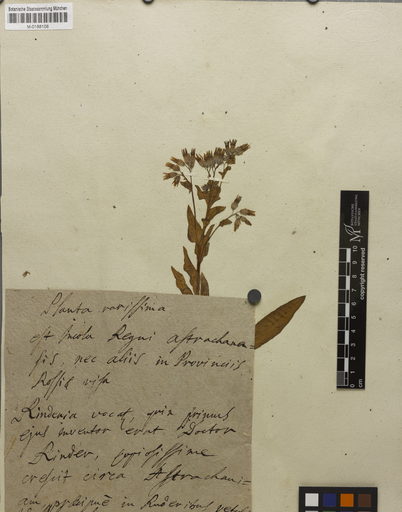 Botanische Staatssammlung München
M-0188108
cm copyright reserved
Planta rarissima
est incola Regni astrachana
sis, nec aliis in Provinciis
Rossis visa
Lindenia vocat, quia primus
ejus inventor erat Doctor
Linder, copiosissime
crescit circa Astrachani=
am in Ruderibus